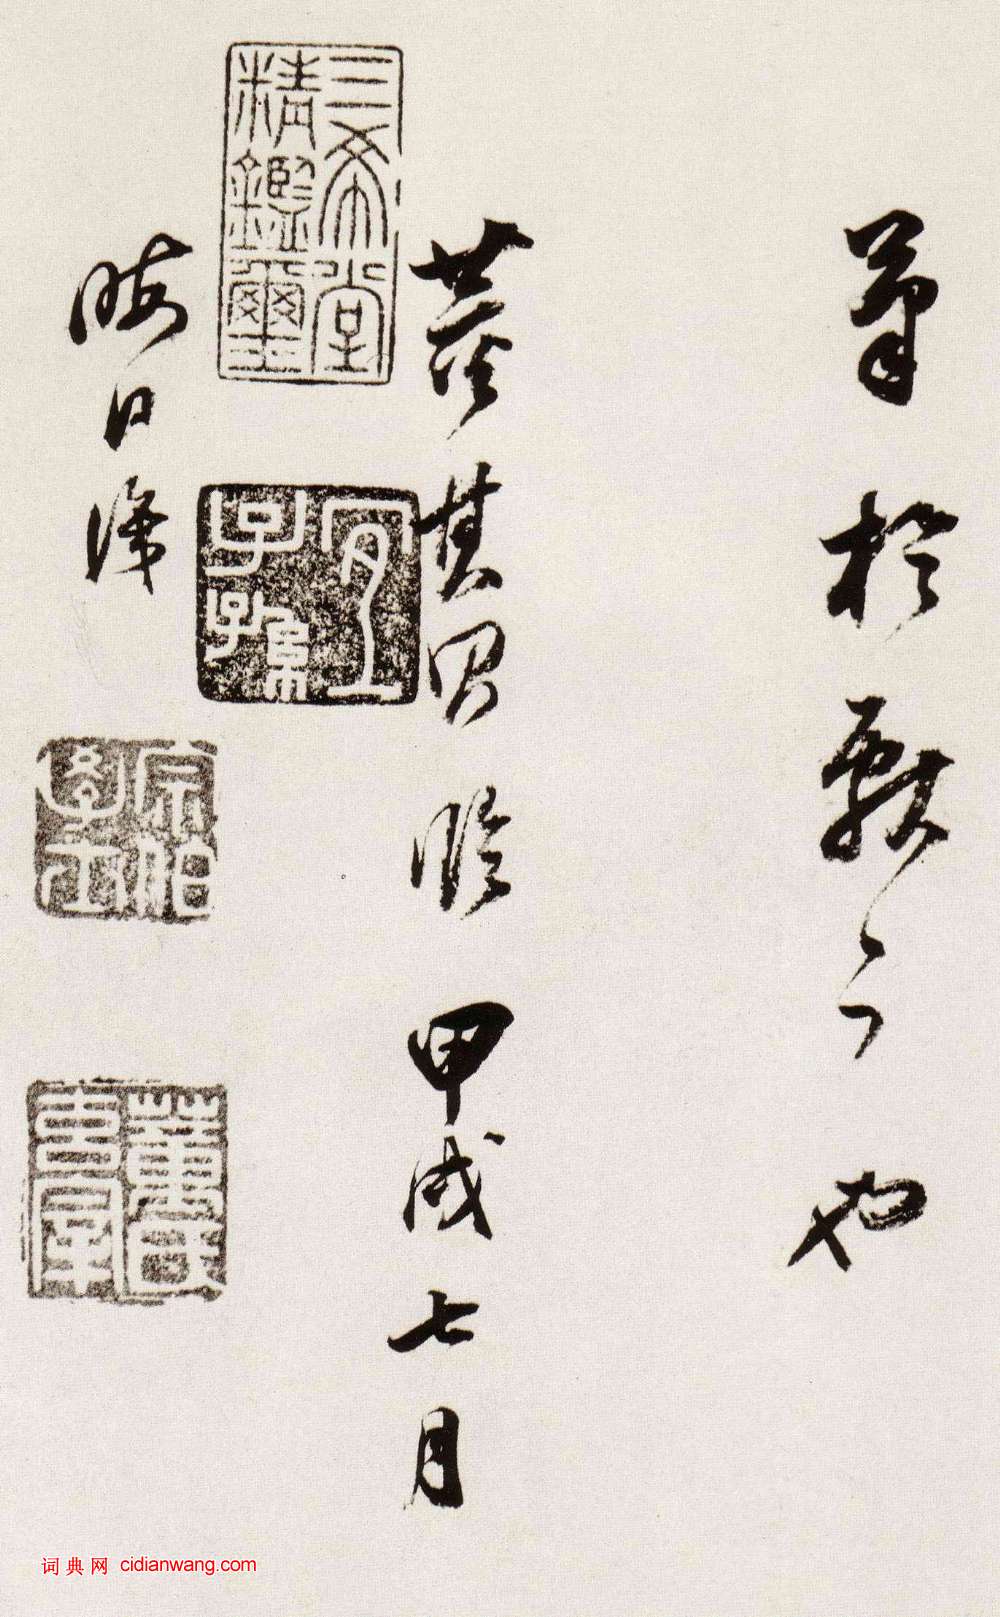 於之也
董其昌臨 甲戌七月
晦日識
三希堂精鑑璽
宜子孫
宗伯學士
董氏玄宰
词典网 cidianwang.com